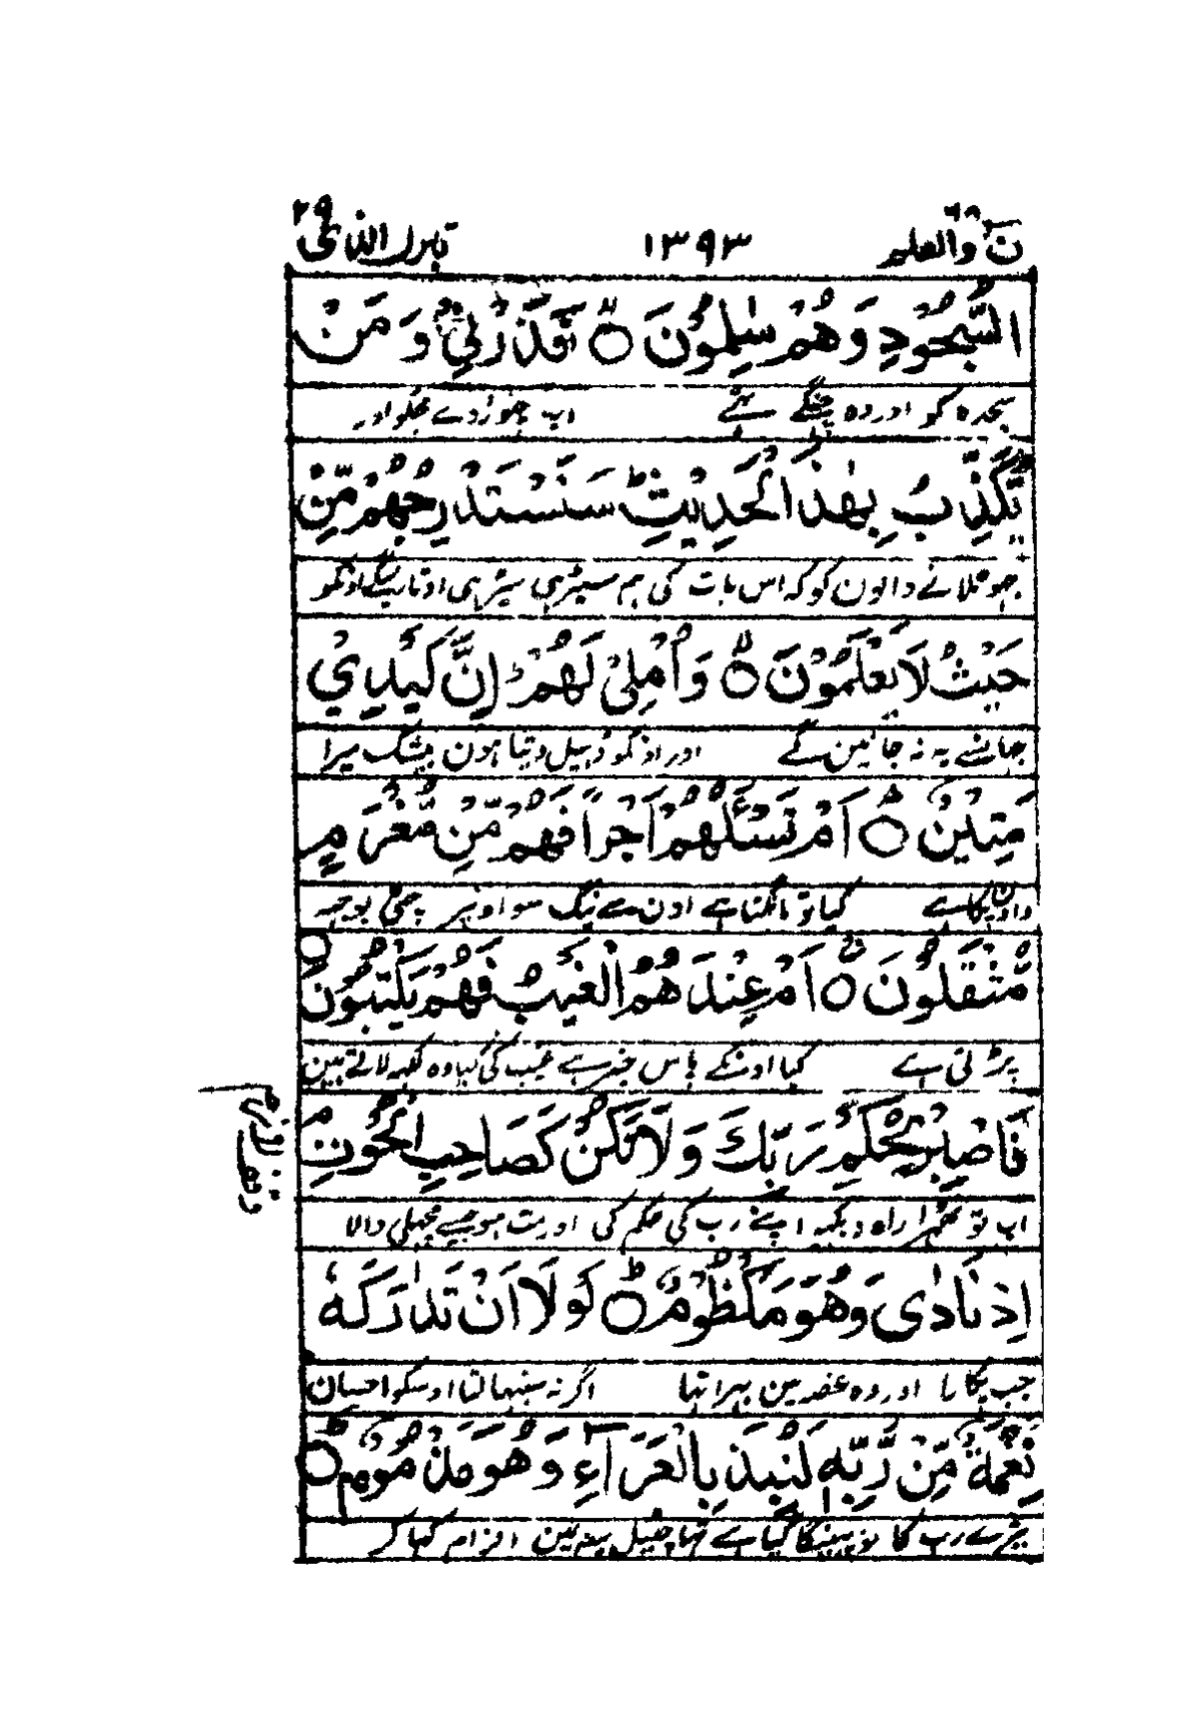 ن والقلم ٦٨
١٣٩٣
تبٰرك الذى ٢٩
السُّجُوْدِ وَهُمْ سٰلِمُوْنَ ○ فَذَرْنِيْ وَ مَنْ
سجدہ کو اور وہ چنگے تھے اب چھوڑ دے مجکو اور
يُّكَذِّبُ بِهٰذَا الْحَدِيْثِ ؕ سَنَسْتَدْرِجُهُمْ مِّنْ
جھوٹلانے والون کو کہ اس بات کی ہم سیڑہی سیڑہی اوتارینگے اونکو
حَيْثُ لَا يَعْلَمُوْنَ ○ وَ اُمْلِيْ لَهُمْ ؕ اِنَّ كَيْدِيْ
جہانسے یہ نہ جانین گے اور اونکو ڈہیل دیتا ہون بیشک میرا
مَتِيْنٌ ○ اَمْ تَسْـَٔلُهُمْ اَجْرًا فَهُمْ مِّنْ مَّغْرَمٍ
داؤن پکا ہے کیا تو مانگتا ہے اون سے نیگ سو اونپر چٹی بوجہہ
مُّثْقَلُوْنَ ○ اَمْ عِنْدَهُمُ الْغَيْبُ فَهُمْ يَكْتُبُوْنَ ○
پڑتی ہے کیا اونکے پاس خبر ہے غیب کی کیا وہ لکہہ لاتے ہین
فَاصْبِرْ لِحُكْمِ رَبِّكَ وَ لَا تَكُنْ كَصَاحِبِ الْحُوْتِ ۘ
وقف لازم
اب تو ٹھہرا راہ دیکہہ اپنے رب کی حکم کی اور مت ہو جیسے مچہلی والا
اِذْ نَادٰى وَ هُوَ مَكْظُوْمٌ ○ لَوْ لَا اَنْ تَدٰرَكَهٗ
جب پکارا اور وہ غصہ مین بہرا تہا اگر نہ سنبہالتا اوسکو احسان
نِعْمَةٌ مِّنْ رَّبِّهٖ لَنُبِذَ بِالْعَرَآءِ وَ هُوَ مَذْمُوْمٌ ○
تیرے رب کا تو پہینکا گیا ہے تہا چٹیل میدان مین الزام کہا کر